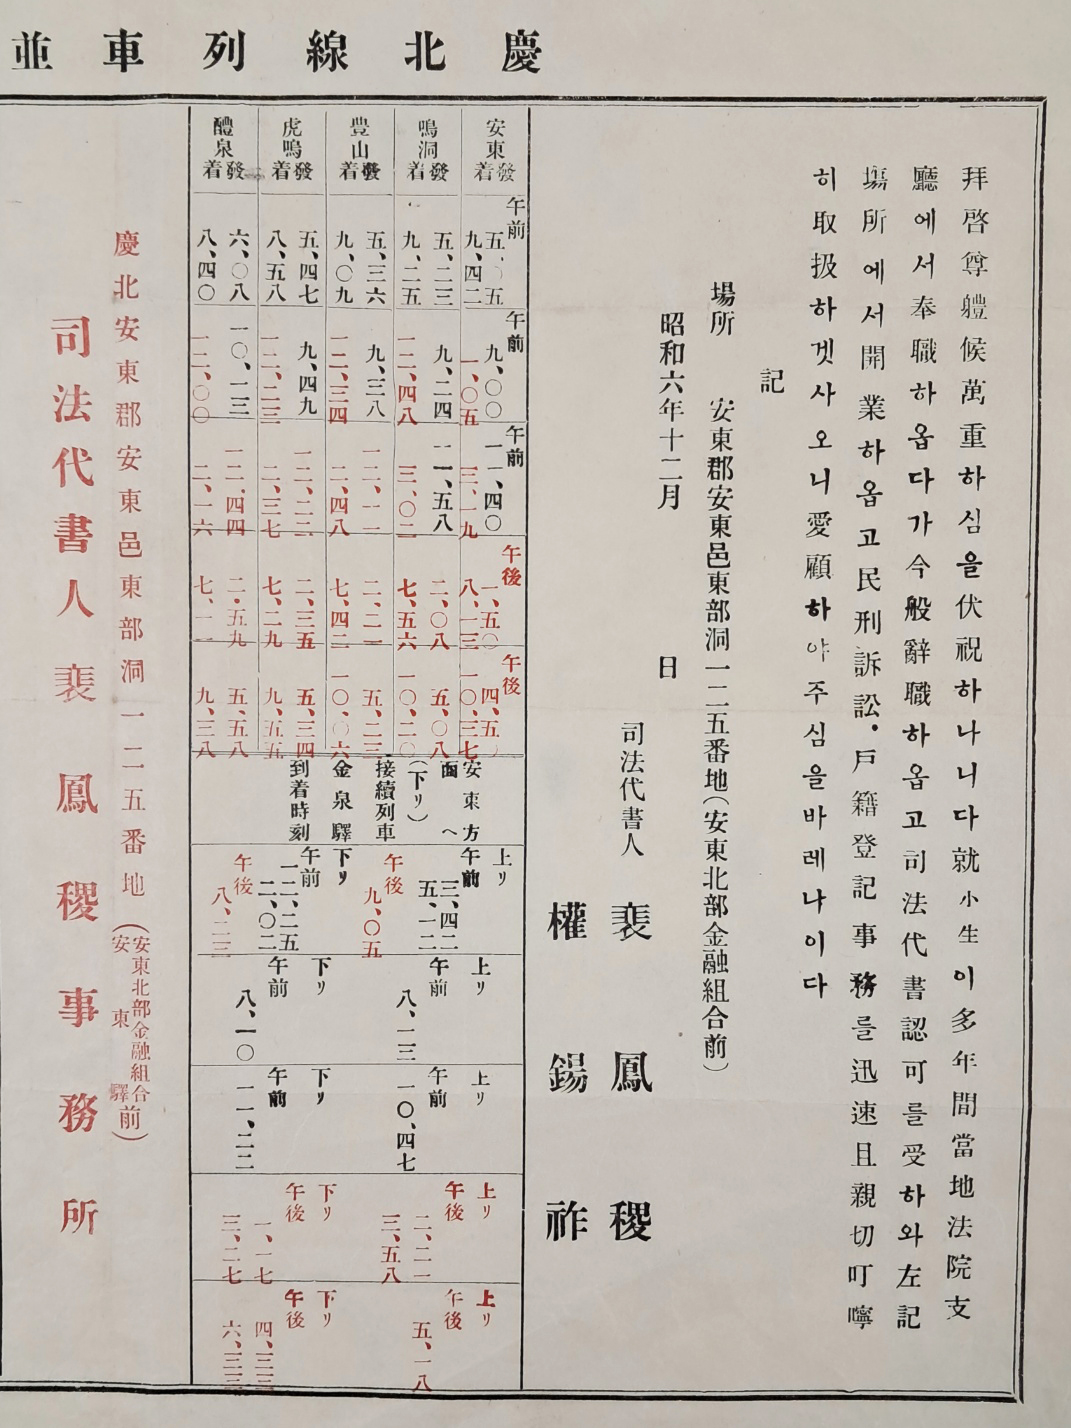 慶北線列車並
拜啓尊軆候萬重하심을伏祝하나니다就小生이多年間當地法院支
廳에서奉職하옵다가今般辭職하옵고司法代書認可를受하와左記
塲所에서開業하옵고民刑訴訟・戶籍登記事務를迅速且親切叮嚀
히取扱하겟사오니愛顧하야주심을바레나이다
記
塲所 安東郡安東邑東部洞一二五番地(安東北部金融組合前)
昭和六年十二月 日
司法代書人 裵鳳稷
權鍚祚
安東發着
午前 五、〇五 九、四二
午前 九、〇〇 一、〇五
午前 一一、四〇 三、一九
午後 一、五〇 八、一三
午後 四、五〇 一〇、三七
鳴洞發着
五、二三 九、二五
九、二四 一二、四八
一一、五八 三、〇二
二、〇八 七、五六
五、〇八 一〇、二〇
豊山發着
五、三六 九、〇九
九、三八 一二、三四
一二、一一 二、四八
二、二一 七、四二
五、二三 一〇、〇六
虎鳴發着
五、四七 八、五八
九、四九 一二、二三
一二、二二 二、三七
二、三五 七、二九
五、三四 九、五五
醴泉發着
六、〇八 八、四〇
一〇、一三 一二、〇〇
一二、四四 二、一六
二、五九 七、一一
五、五八 九、三八
安東方面へ
(下リ)
接續列車
金泉驛
到着時刻
上リ
午前 三、四二 五、一二
午後 九、〇五
下リ
午前 一二、二五 二、〇二
午後 八、二三
上リ
午前 八、一三
下リ
午前 八、一〇
上リ
午前 一〇、四七
下リ
午前 一一、二二
上リ
午後 二、二一 三、五八
下リ
午後 一、一七 三、二七
上リ
午後 五、一八
下リ
午後 四、三三 六、三三
慶北安東郡安東邑東部洞一二五番地(安東北部金融組合 安東驛前)
司法代書人裵鳳稷事務所